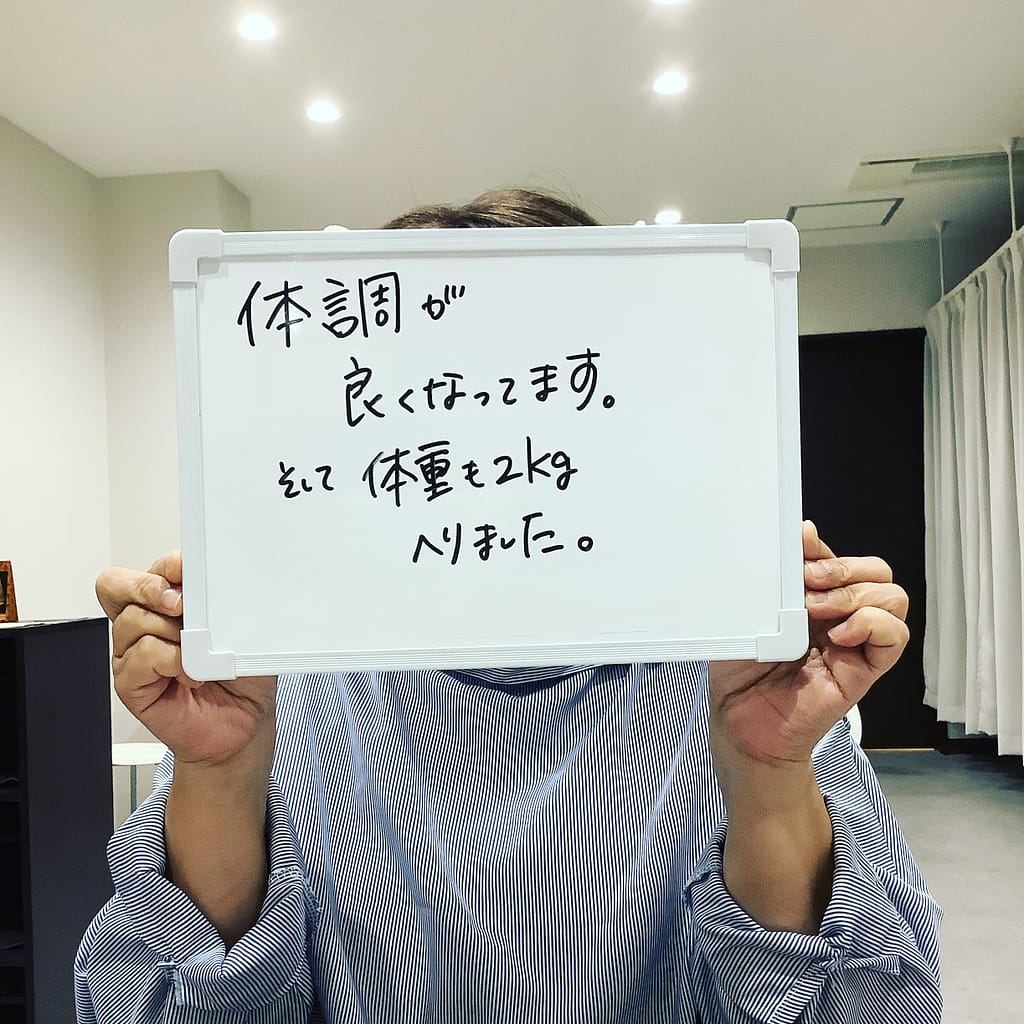 体調が
良くなってます。
そして 体重も2kg
へりました。